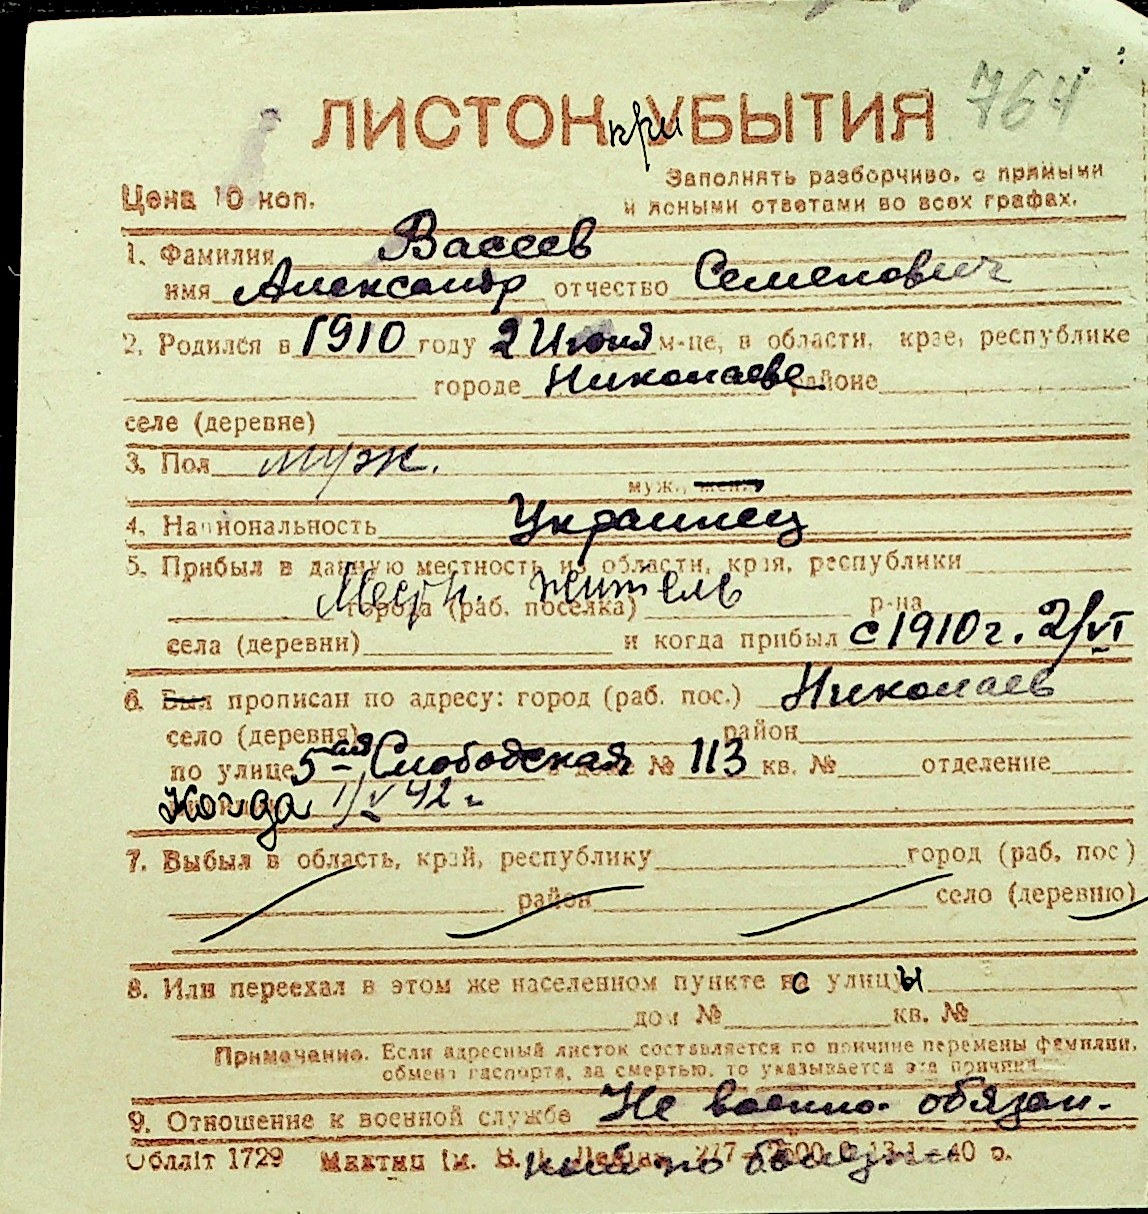 764
ЛИСТОК при УБЫТИЯ
Заполнять разборчиво, с прямыми
Цена 10 коп. и ясными ответами во всех графах.
1. Фамилия Васеев
имя Александр отчество Семенович
2. Родился в 1910 году 2 Июня м-це, в области, крае, республике
городе Николаеве районе
селе (деревне)
3. Пол муж.
муж., жен.,
4. Национальность Украинец
5. Прибыл в данную местность из области, края, республики
Местн. житель
города (раб. поселка) р-на
села (деревни) и когда прибыл с 1910 г. 2/VI
6. Был прописан по адресу: город (раб. пос.) Николаев
село (деревня) район
по улице 5-ая Слободская доме № 113 кв. № отделение
Когда 1/V 42 г
7. Выбыл в область, край, республику город (раб. пос)
район село (деревню)
8. Или переехал в этом же населенном пункте с улицы
дом № кв. №
Примечание. Если адресный листок составляется по причине перемены фамилии,
обмена паспорта, за смертью, то указывается эта причина
9. Отношение к военной службе Не военно-обязан-
ный по болезни
Обллiт 1729 iм. 277 13-1-40 р.